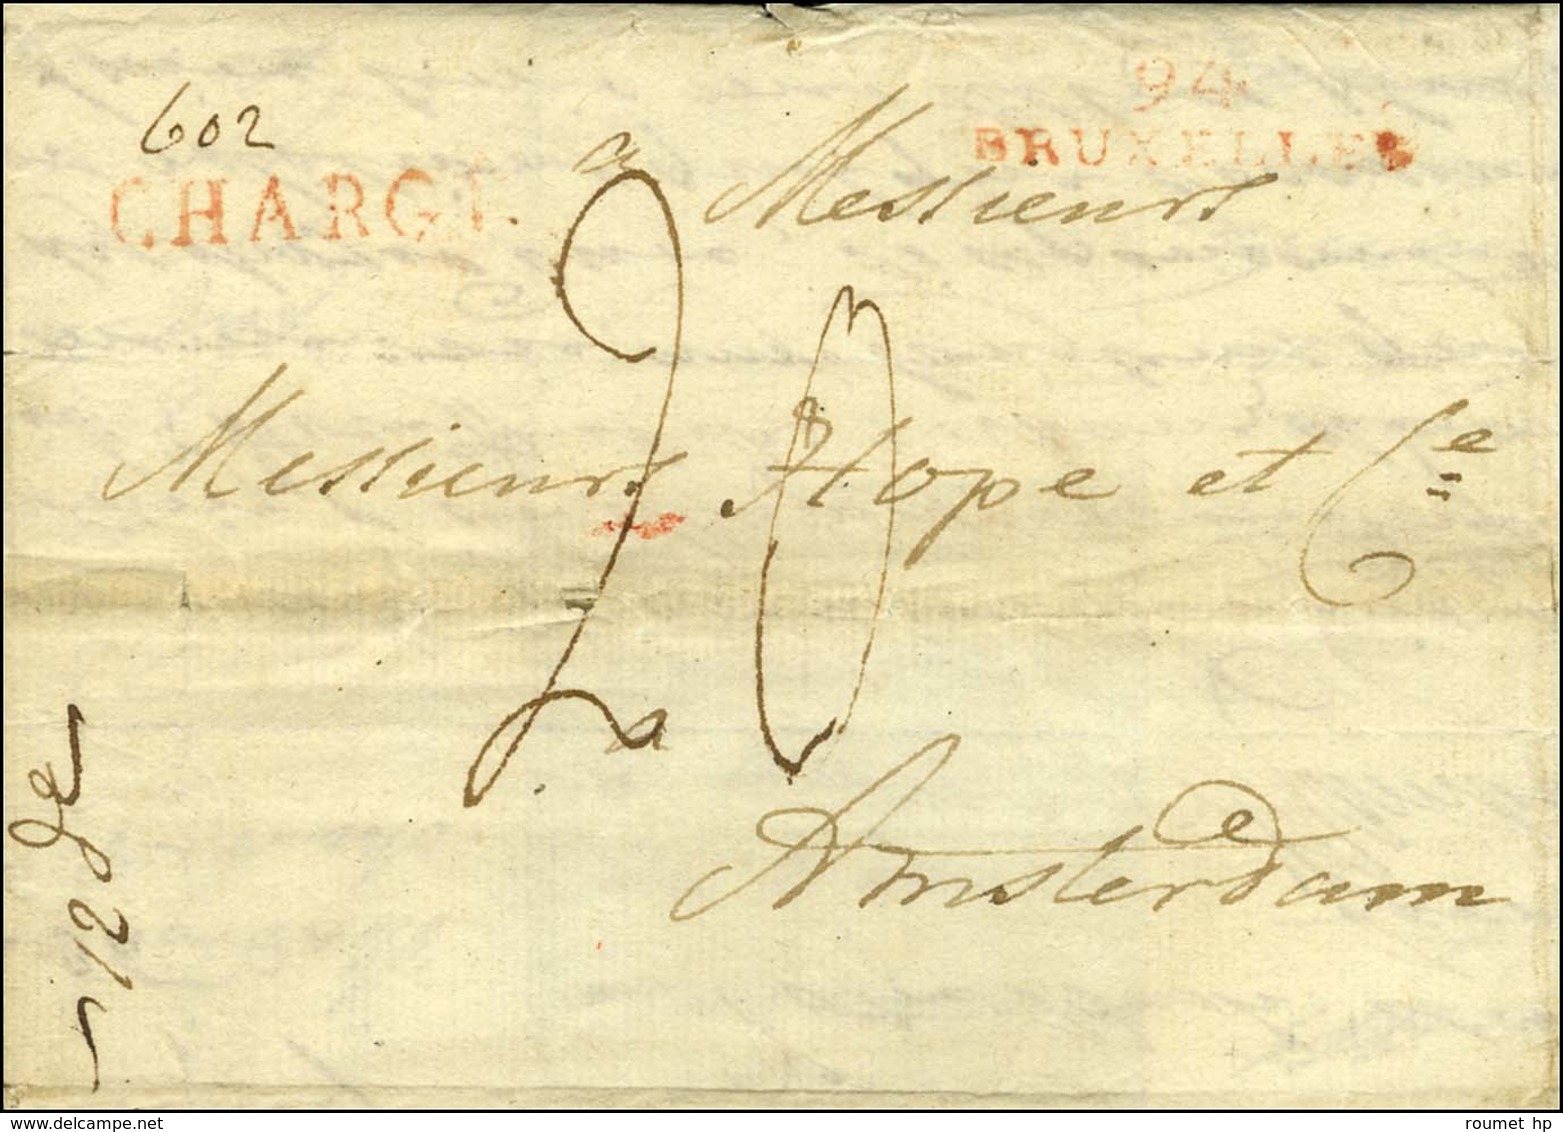 602
94
BRUXELLES
CHARGÉ
a Messieurs
20
Messieurs Hope et Cie
a
Amsterdam
delcampe.net
roumet hp